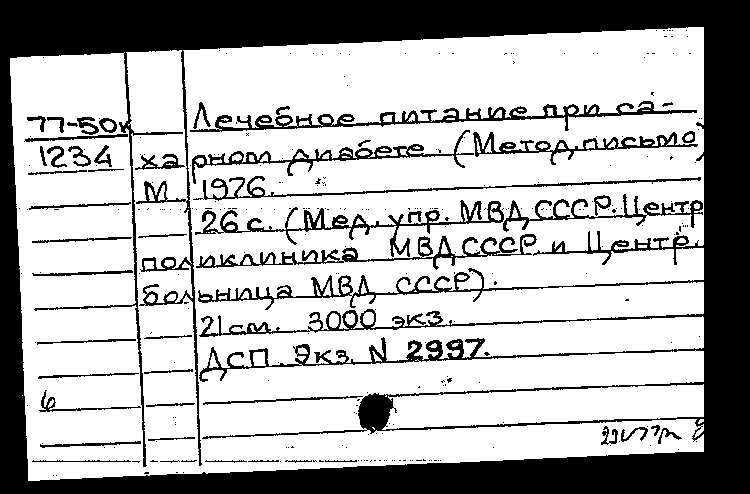 77-50к Лечебное питание при са-
1234 харном диабете. (Метод.письмо)
М. 1976.
26 с. (Мед. упр. МВД СССР. Центр.
поликлиника МВД СССР и Центр.
больница МВД СССР).
21 см. 3000 экз.
ДСП Экз. N 2997.
6